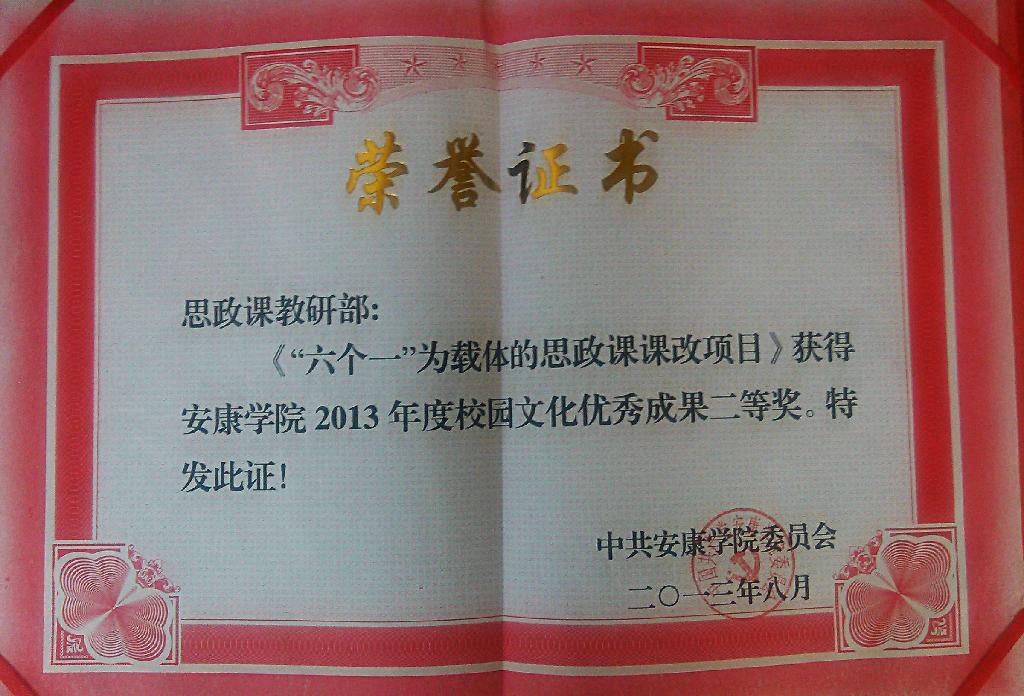 荣誉证书
思政课教研部:
《“六个一”为载体的思政课课改项目》获得
安康学院 2013 年度校园文化优秀成果二等奖。特
发此证!
中共安康学院委员会
二〇一三年八月